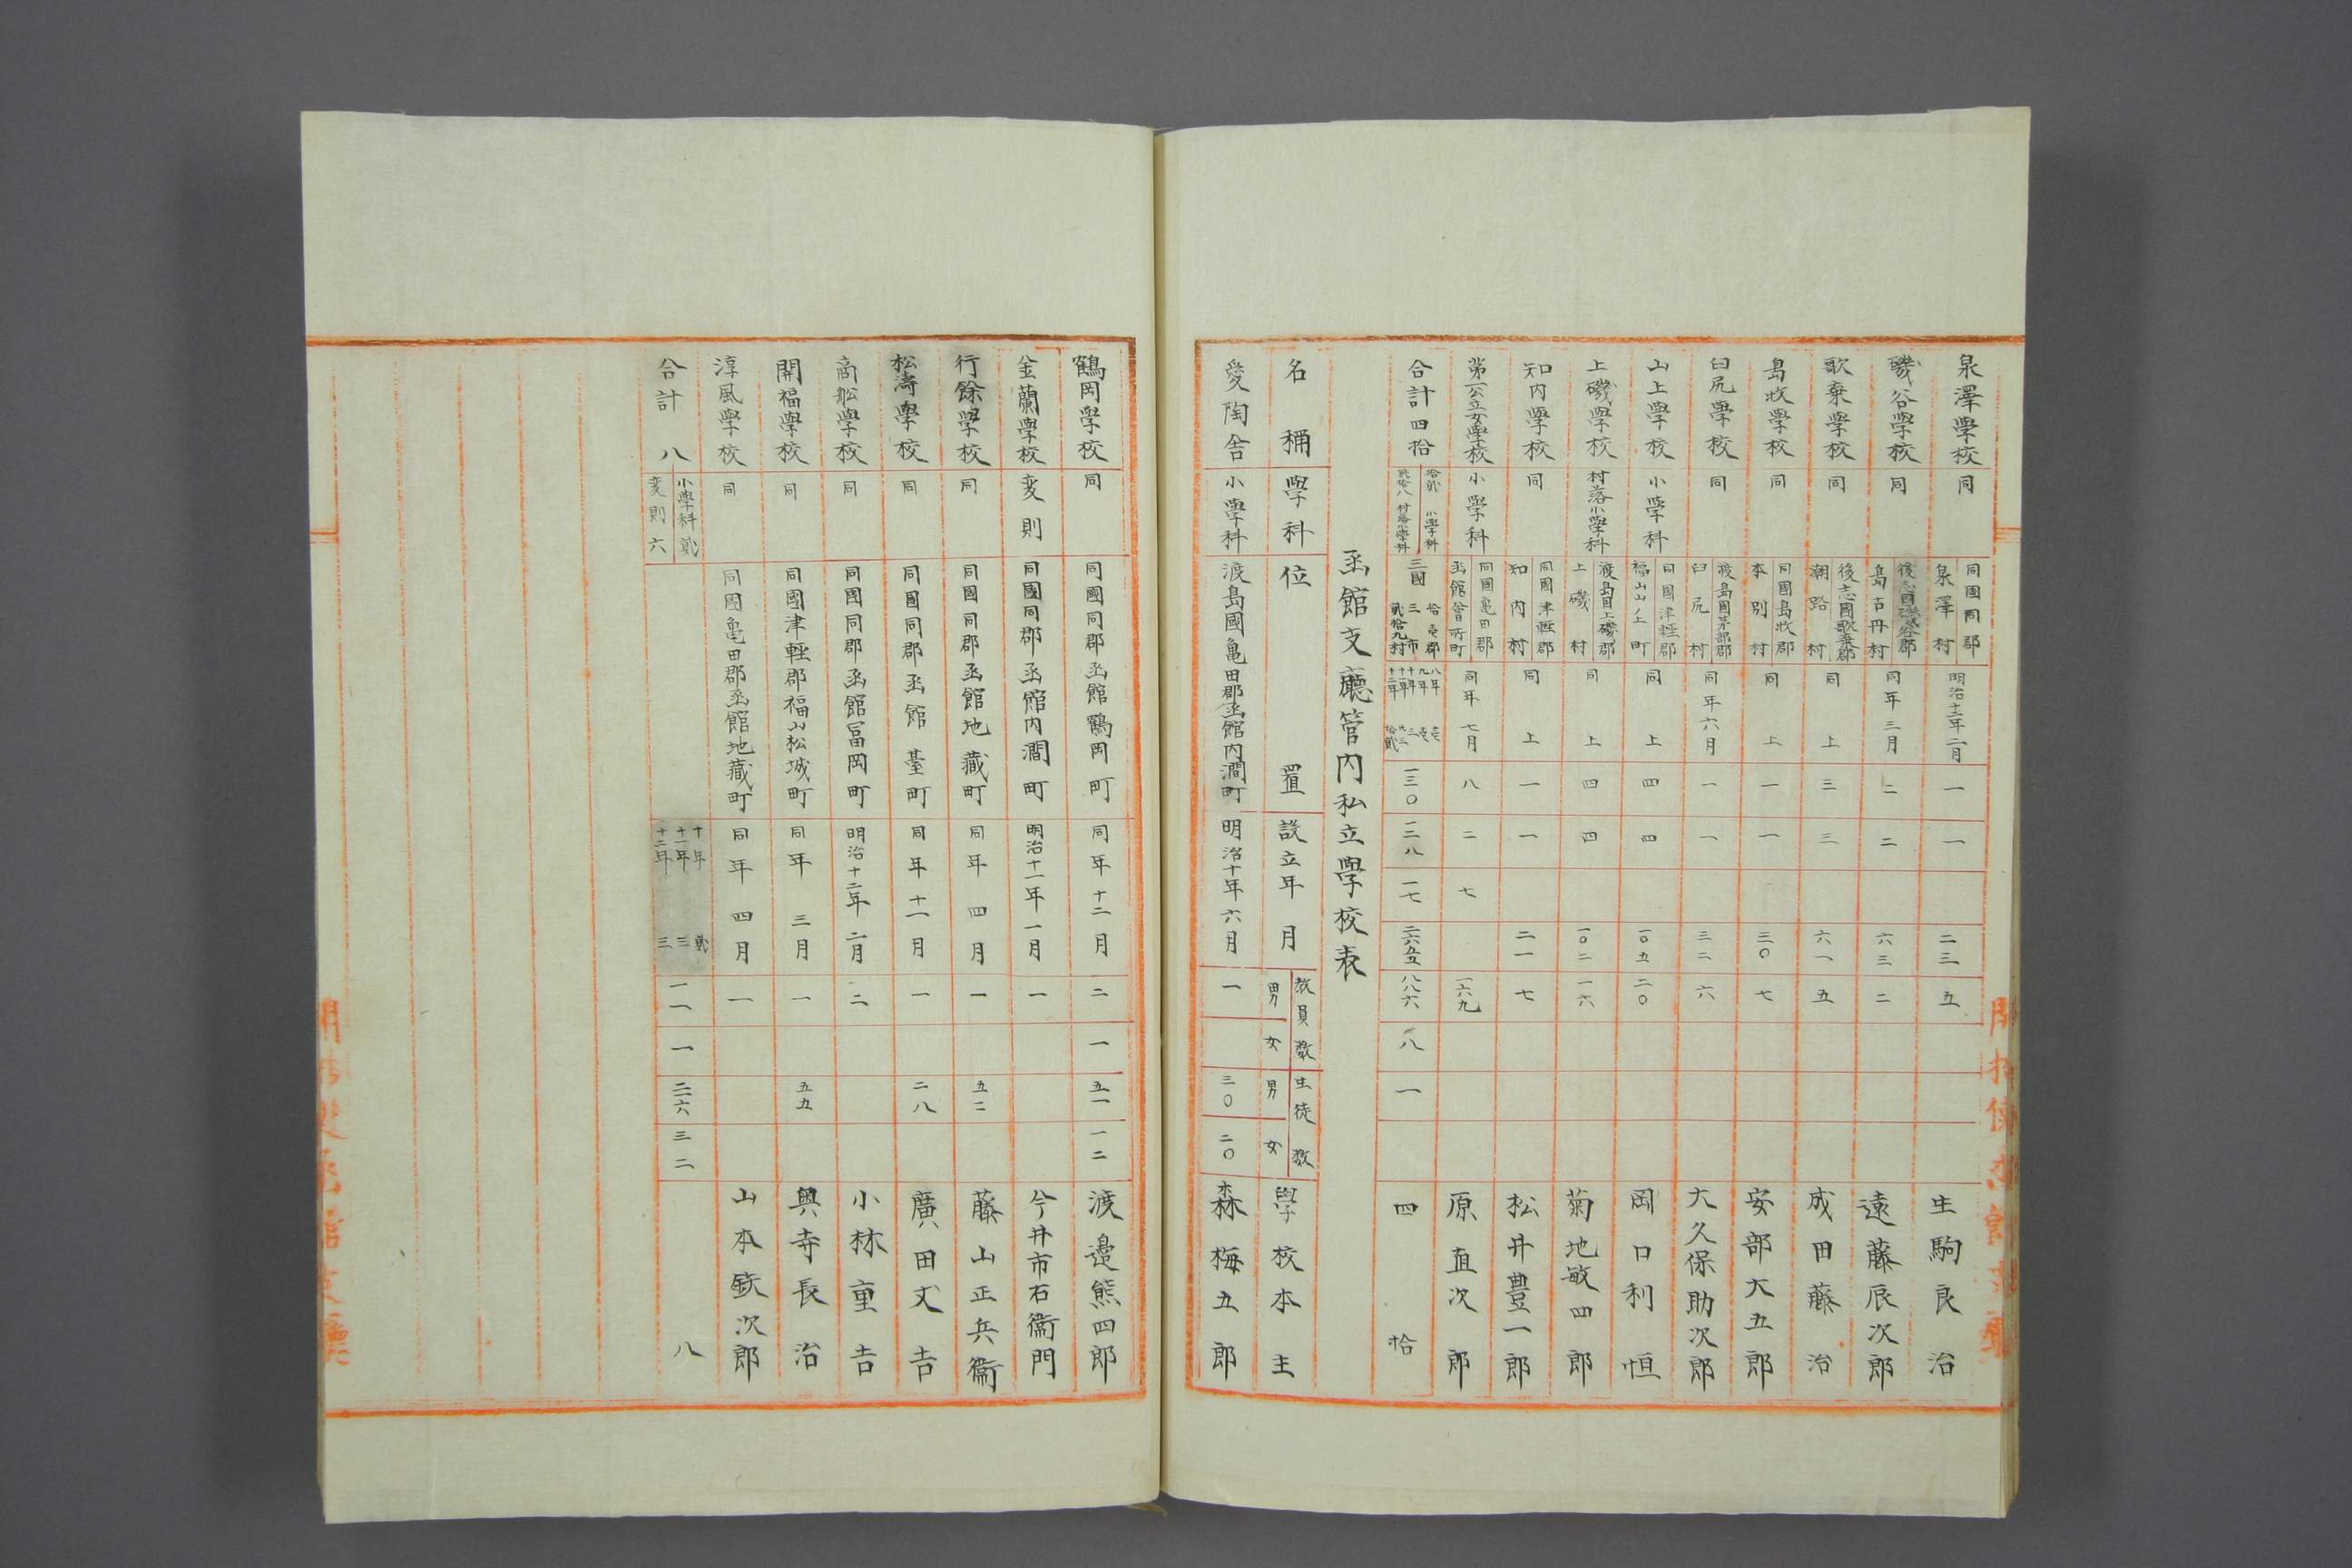 泉澤學校 同 同國同郡泉澤村 明治十二年二月 一 一 二三 五 生駒良治
磯谷學校 同 後志國磯谷郡島古丹村 同年三月 二 二 六三 二 遠藤辰次郎
歌棄學校 同 後志國歌棄郡潮路村 同上 三 三 六一 五 成田藤治
島牧學校 同 同國島牧郡本別村 同上 一 一 三〇 七 安部大五郎
臼尻學校 同 渡島國茅部郡臼尻村 同年六月 一 一 三二 六 大久保助次郎
山上學校 小學科 同國津輕郡福山山ノ上町 同上 四 四 一〇五 二〇 岡口利恒
上磯學校 村落小學科 渡島國上磯郡上磯村 同上 四 四 一〇二 一六 菊地敏四郎
知内學校 同 同國津輕郡知内村 同上 一 一 二一 七 松井豊一郎
第一公立女學校 小學科 同國亀田郡函館會所町 同年七月 八 二 七 一六九 原直次郎
合計四拾 拾貳 小學科 貳拾八 村落小學科 三國 拾壱郡 三市 貳拾九村 八年 九年 十年 十一年 十二年 一三〇 一二八 一七 二六五五 八八六 八 一 四拾
函館支廳管内私立學校表
名稱 學科 位置 設立年月 教員數 男 女 生徒數 男 女 學校本主
愛陶舎 小學科 渡島國亀田郡函館内澗町 明治十年六月 一 三〇 二〇 森梅五郎
鶴岡學校 同 同國同郡函館鶴岡町 同年十二月 二 一 五一 一二 渡邉熊四郎
金蘭學校 変則 同國同郡函館内澗町 明治十一年一月 一 今井市右衞門
行餘學校 同 同國同郡函館地藏町 同年四月 一 五二 藤山正兵衞
松濤學校 同 同國同郡函館臺町 同年十一月 一 二八 廣田丈吉
商舩學校 同 同國同郡函館冨岡町 明治十二年二月 二 小林重吉
開福學校 同 同國津輕郡福山松城町 同年三月 一 五五 興寺長治
淳風學校 同 同國亀田郡函館地藏町 同年四月 一 山本鉄次郎
合計 八 小學科貳 変則六 十年 貳 十一年 三 十二年 三 一一 一 二一六 三二 八
開拓使函館支廳